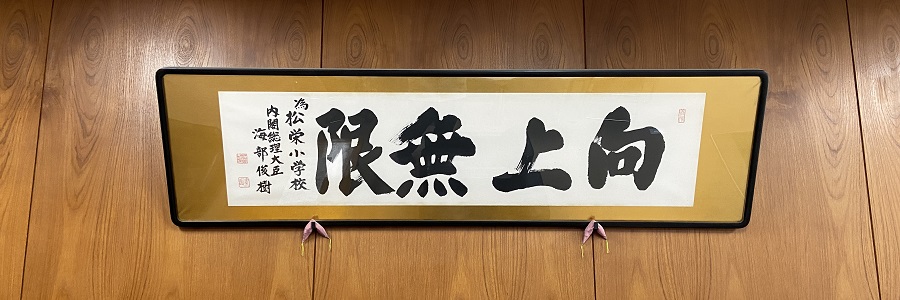 向上無限
為松栄小学校
内閣総理大臣
海部俊樹